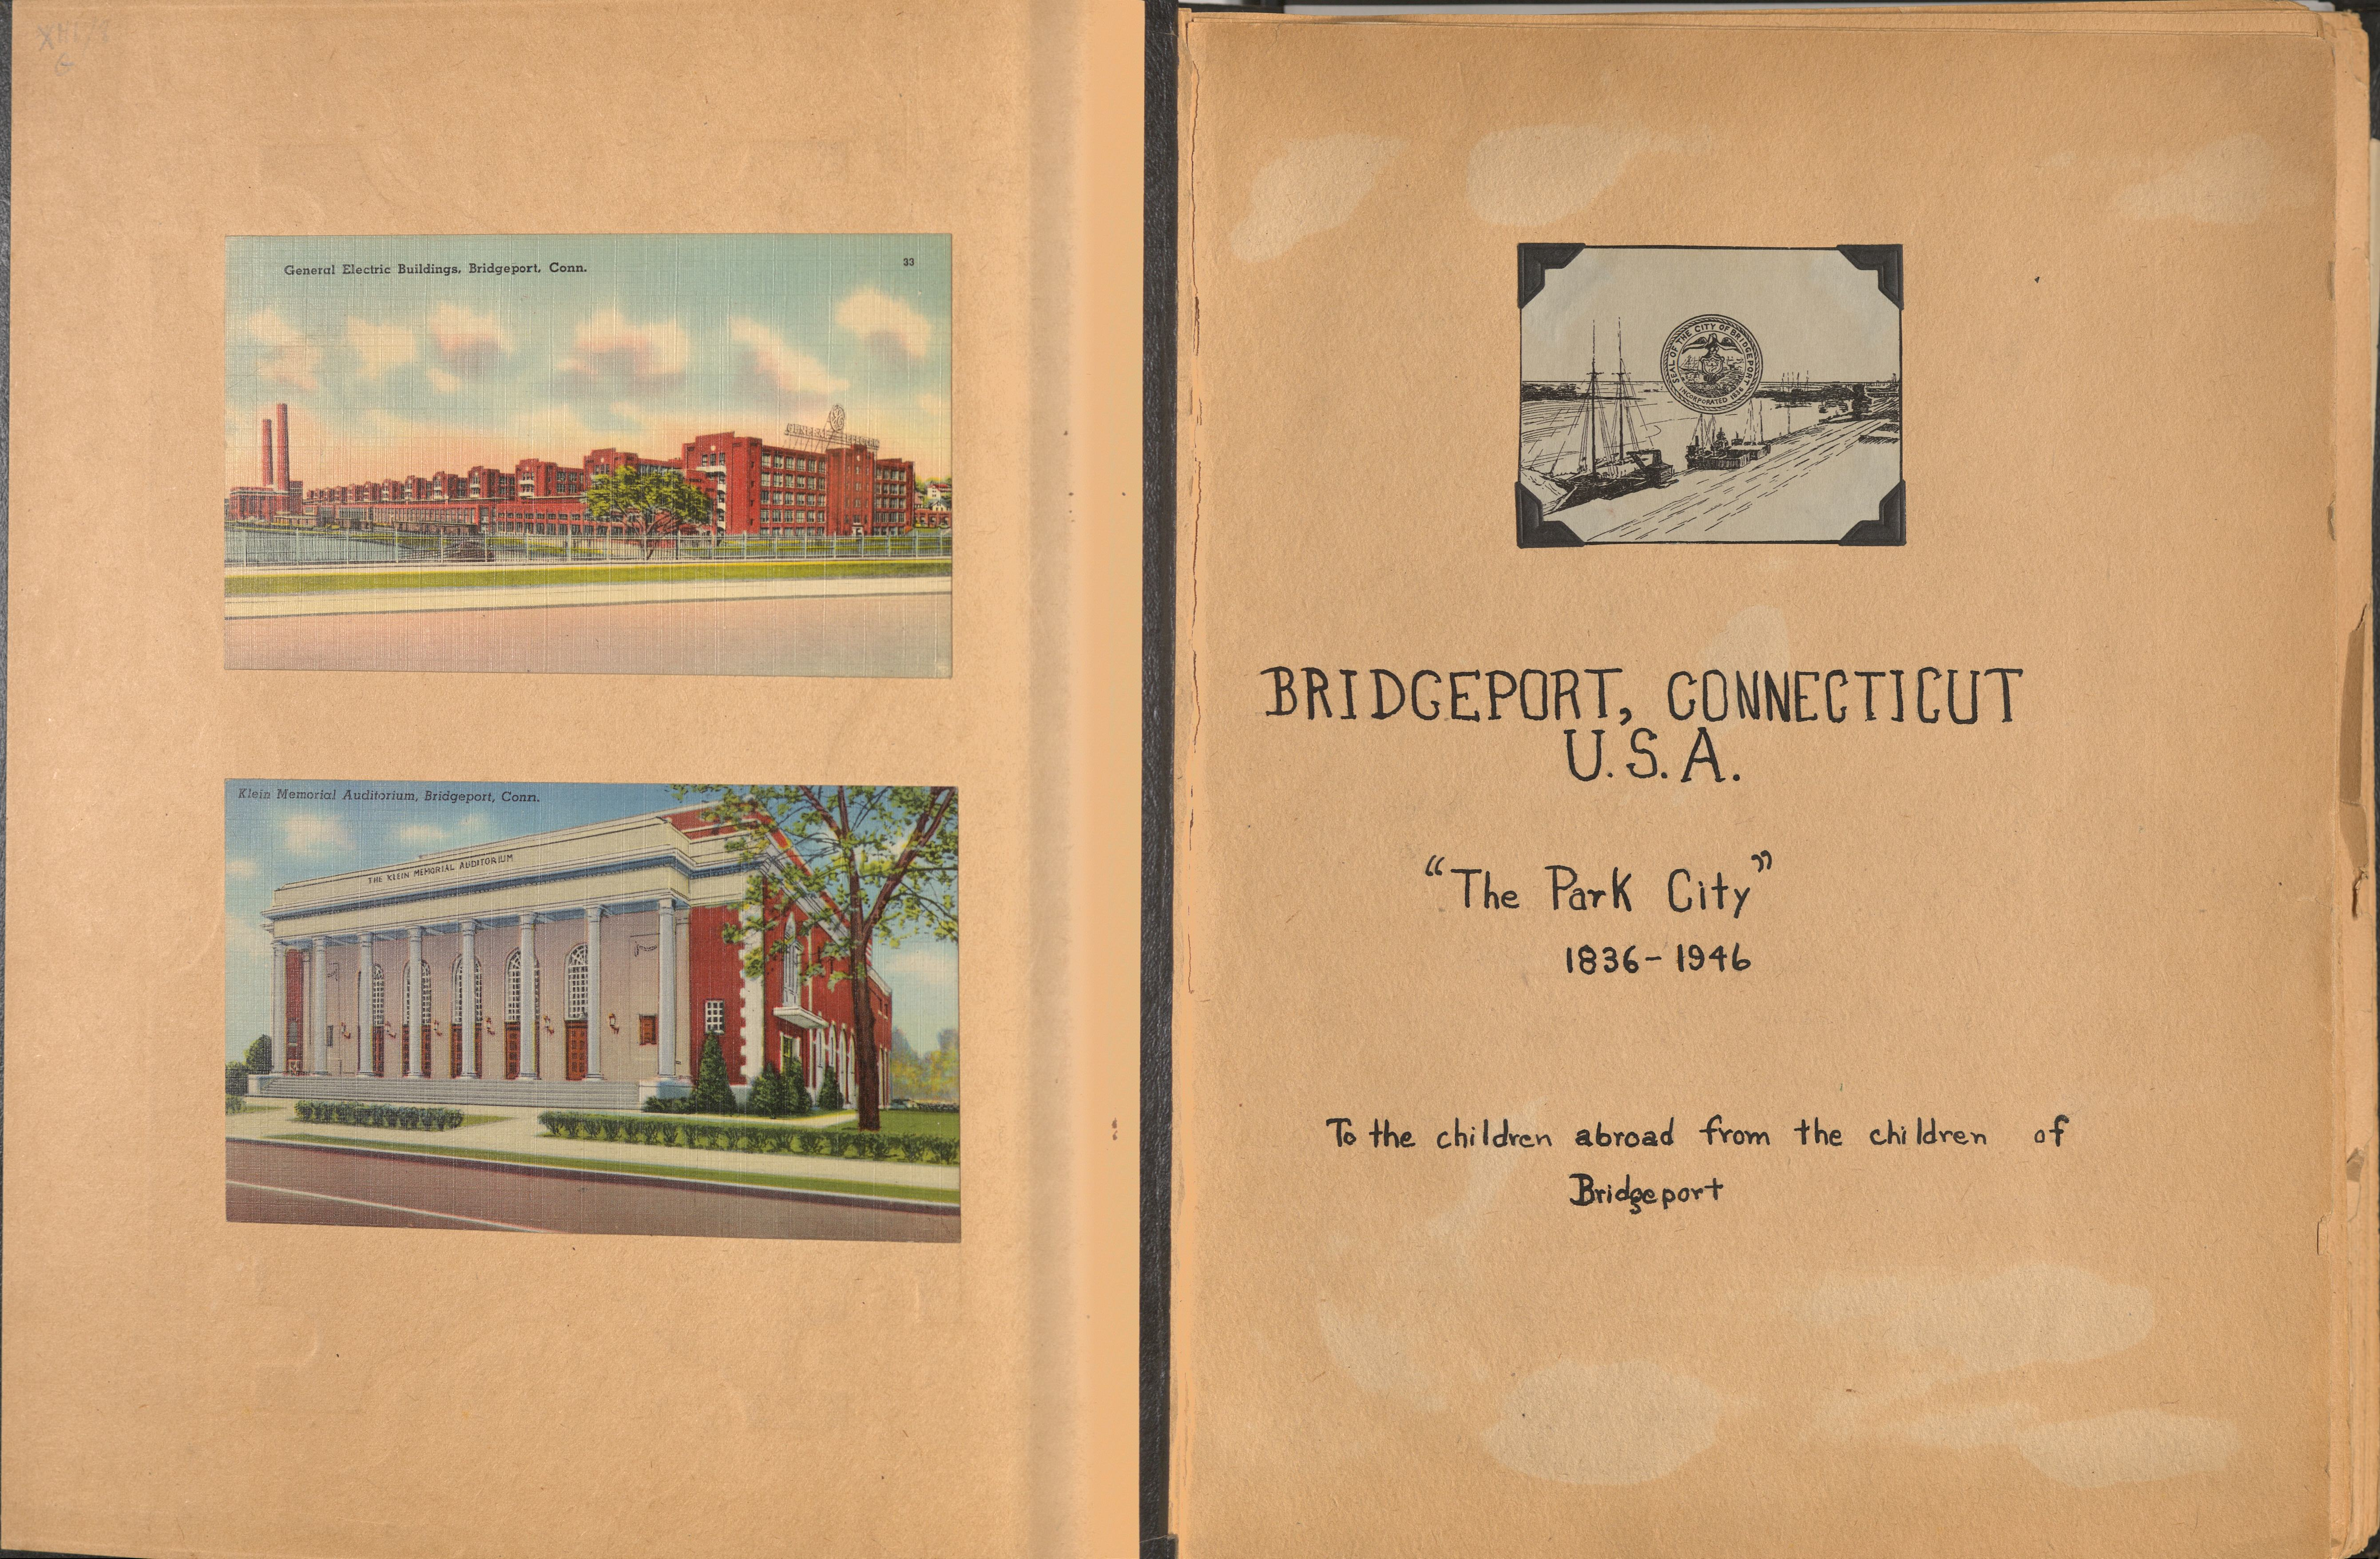 General Electric Buildings, Bridgeport, Conn.
33
GENERAL ELECTRIC
Klein Memorial Auditorium, Bridgeport, Conn.
THE KLEIN MEMORIAL AUDITORIUM
SEAL OF THE CITY OF BRIDGEPORT
INCORPORATED 1836
BRIDGEPORT, CONNECTICUT
U.S.A.
"The Park City"
1836-1946
To the children abroad from the children of
Bridgeport